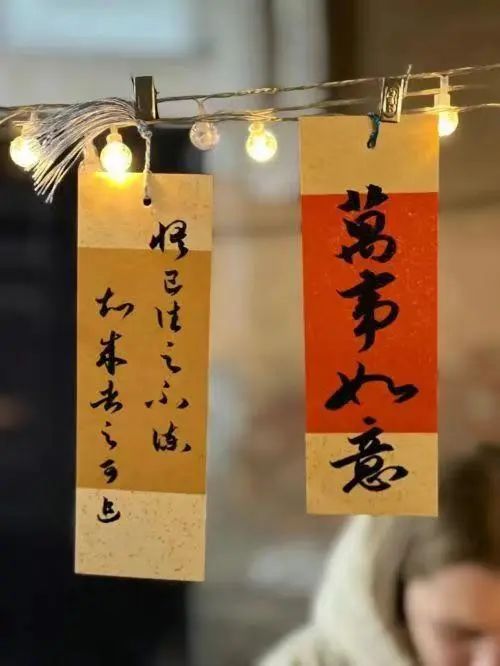 萬事如意
悟已往之不諫
知来者之可追